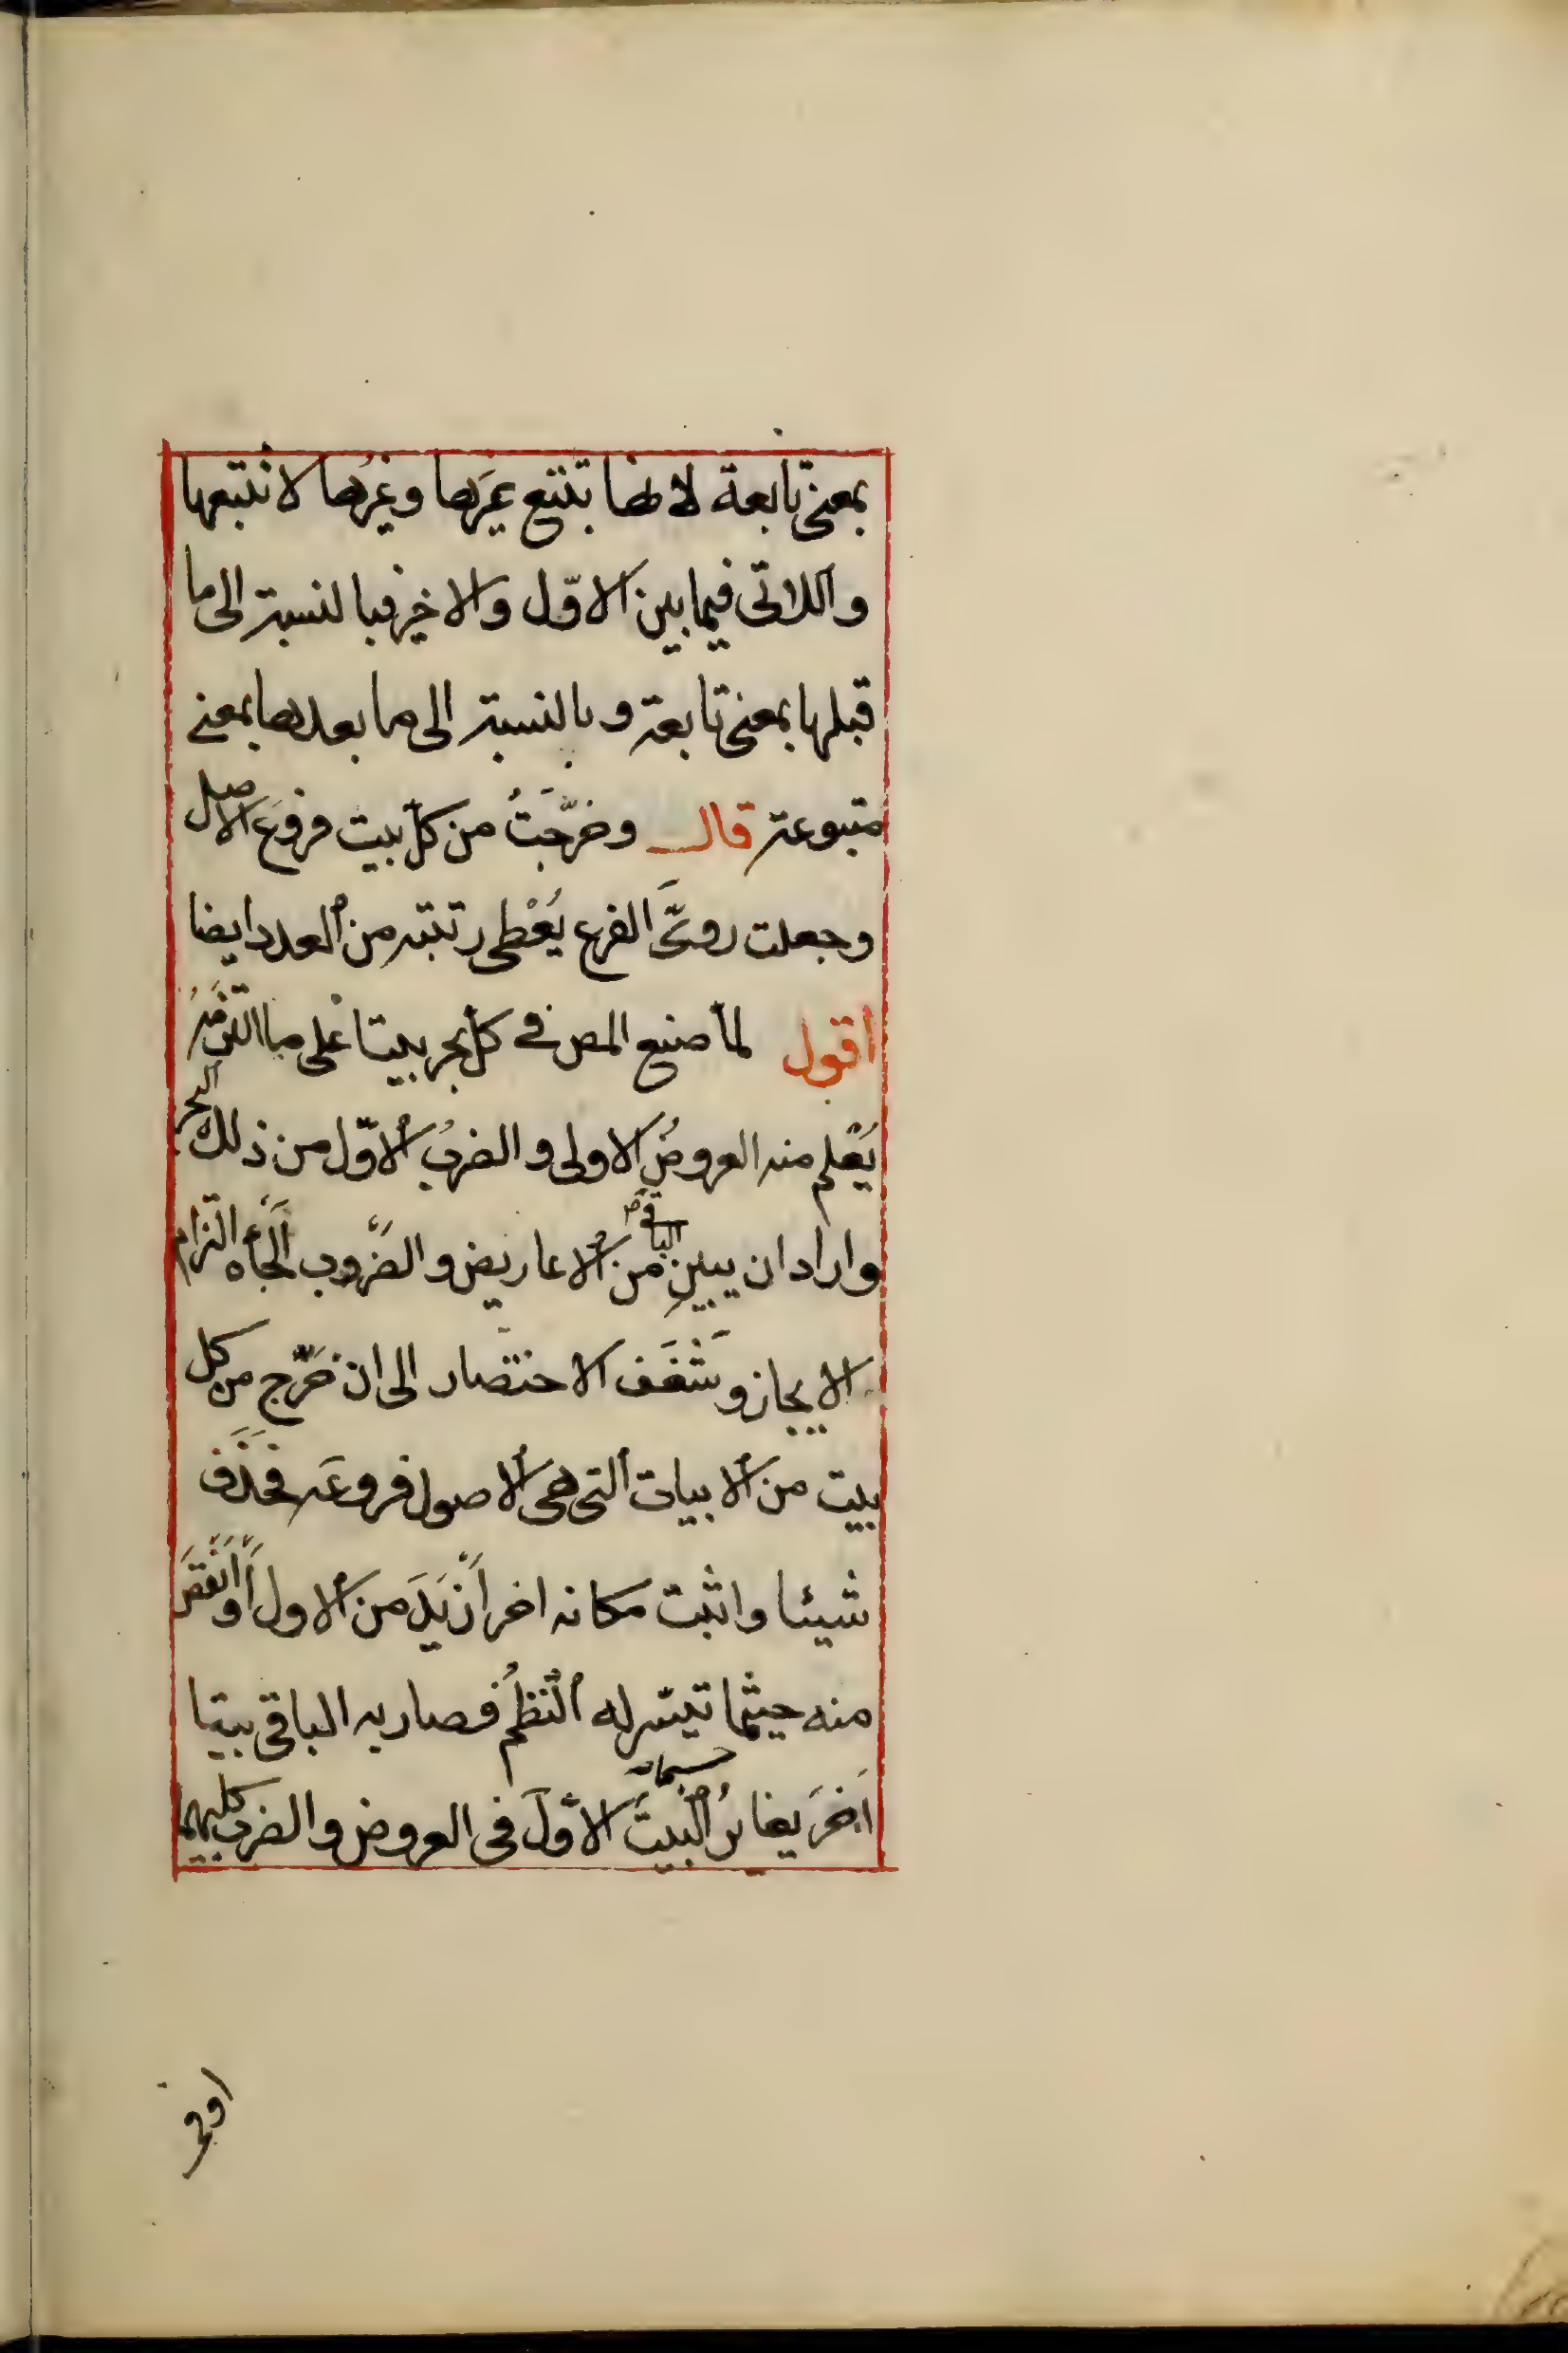 بمعنى تابعة لانها تتبع غيرها وغيرها لا تتبعها
واللاتى فيما بين الاوّل والاخير فبالنسبة الى ما
قبلها بمعنى تابعة وبالنسبة الى ما بعدها بمعنى
متبوعة قال وخرّجتُ من كل بيت فروعَ الاصل
وجعلت روىَّ الفرع يُعْطى رتبته من العدد ايضا
اقول لما صنع المص فى كل بحر بيتا على ما التزمه
يُعْلم منه العروضُ الاولى والضربُ الاوّل من ذلك البحر
واراد ان يبين الباقى من الاعاريض والضّروب الجأه التزام
الايجاز وشَغَف الاختصار الى ان خرّج من كل
بيت من الابيات التى هى الاصول فروعَه فحَذَف
شيئا واثبت مكانه اخر اَزْيَدَ من الاول اَوْ اَنْقَصَ
منه حيثما تيسّر له النظمُ فصار به الباقى بيتا
اٰخرَ يغايرُ البيتَ الاوّلَ فى العروض والضرب كليهما
اوفى